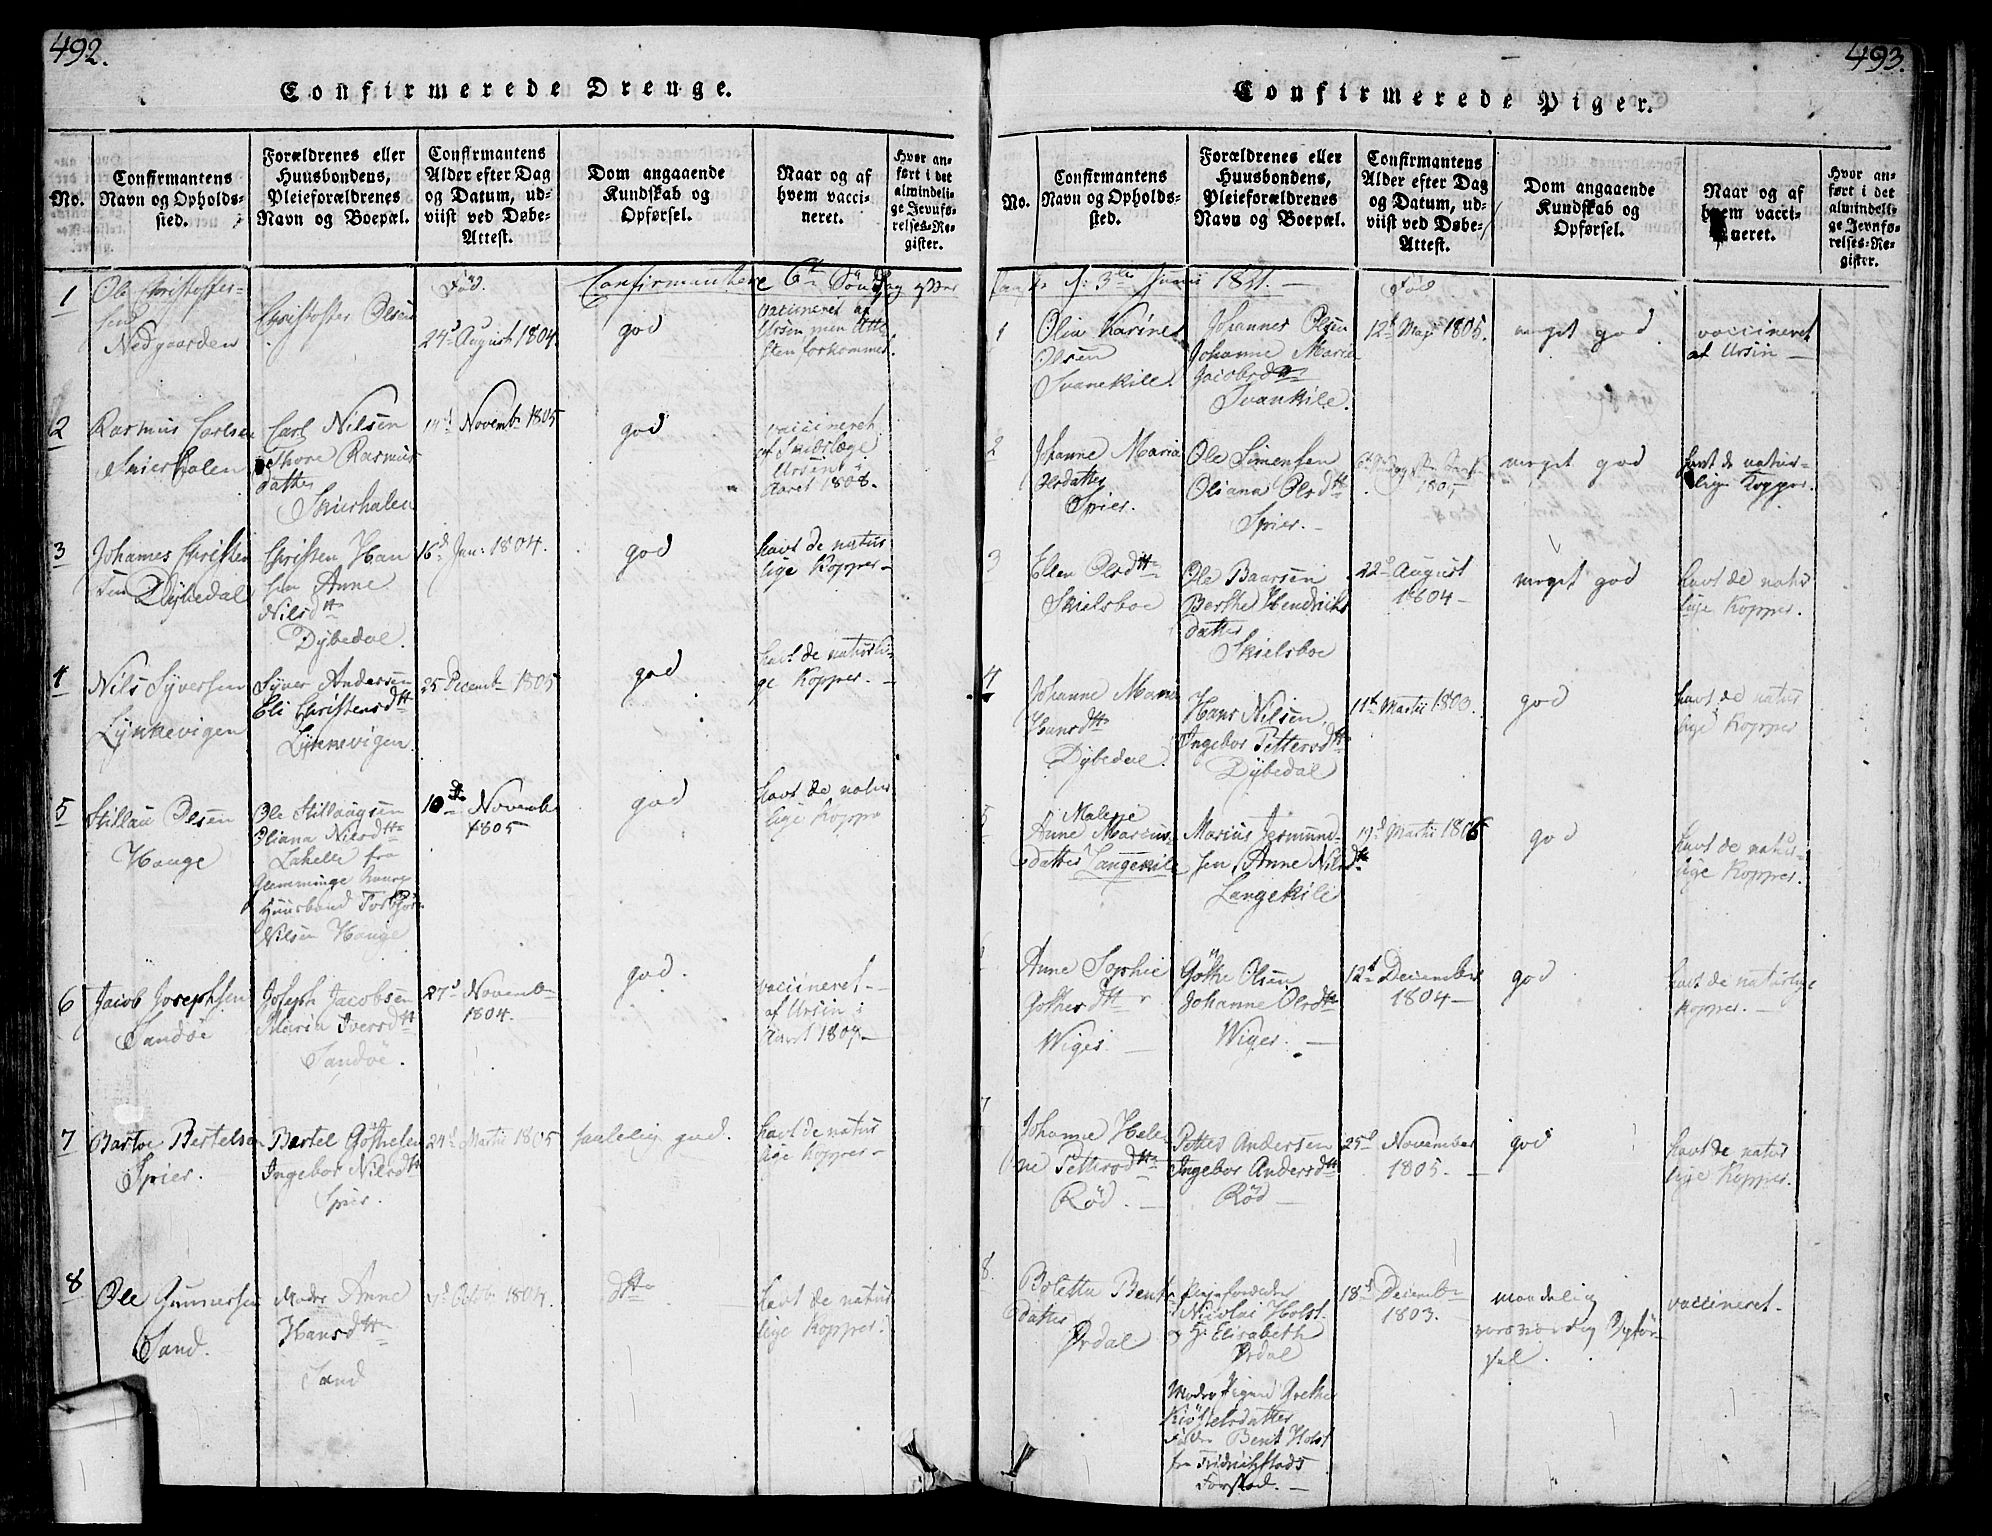 492.
Confirmerede Drenge.
No.
Confirmantens
Navn og Opholds-
sted.
Forældrenes eller
Huusbondens,
Pleieforældrenes
Navn og Boepæl.
Confirmantens
Alder efter Dag
og Datum, ud-
viist ved Døbe-
Attest.
Dom angaaende
Kundskab og
Opførsel.
Naar og af
hvem vacci-
neret.
Hvor an-
ført i det
almindeli-
ge Jevnfø-
relses-Re-
gister.
Fød.
Confirmantene 6te Søndag efter
1
Ole Christoffer-
sen
Nedgaarden
Christoffer Olsen
24d August 1804
god
vaccineret af
Ursin men Atte-
sten forkommet.
2
Rasmus Carlsen
Skierhalen
Carl Nilsen
Thore Rasmus
datter
Skierhalen
14d Novembr 1805
god
vaccineret
af
Ursin i
Aaret 1808.
3
Johannes Christen
sen Dybedal
Christen Han
sen Anne
Nilsdtr
Dybedal
16d Jan: 1804.
god
havt de natur
lige Kopper
4
Nils Syversen
Lynkevigen
Syver Andersen
Eli Christensdtr
Lynnevigen
25 Decembr 1805
god
havt de naturli-
ge Kopper.
5
Stillau Olsen
Hauge
Ole Stillaugsen
Oliana Nilsdtr
Lahelle fra
Glemminge
Huusbond Torbjør
Nilsen Hauge
10de Novembr
1805
god
havt de natur
lige Koppe
6
Jacob Josephsen
Sandøe
Joseph Jacobsen
Maria Iversdtr
Sandøe.
27d Novembr
1804.
god.
vaccineret
af Ursin i
Aaret 1807
7
Bastoe Bertelsen
Spier.
Bertel Gøthesen
Ingebor Nilsdtr
Spier.
24d Martii 1805
taalelig god.
havt de natur
lige Kopper
8
Ole Gunnersen
Sand.
Moder Anne
Hansdtr
Sand
Octbr 1804.
dto
havt de natur
lige Kopper.
493.
Confirmerede Piger.
No.
Confirmantens
Navn og Opholds-
sted.
Forældrenes eller
Huusbondens,
Pleieforældrenes
Navn og Boepæl.
Confirmantens
Alder efter Dag
og Datum, ud-
viist ved Døbe-
Attest.
Dom angaaende
Kundskab og
Opførsel.
Naar og af
hvem vacci-
neret.
Hvor an-
ført i det
almindeli-
ge Jevnfø-
relses-Re-
gister.
d: 3de Junii 1821.
Fød
1
Olia Karine
Olsen
Svanekile.
Johannes Olsen
Johanne Maria
Jacobsdtr
Svankile.
12d May 1805.
meget god
vaccineret
af Ursin
2
Johanne Maria
Olsdatter
Spier.
Ole Simensen
Oliana Olsdtr
Spier.
1805
meget god
havt de natur-
lige Kopper.
3
Ellen Olsdtr
Skielsboe
Ole Baarsen
Berthe Hendrichs
datter
Skielsboe
22d August
1804
meget god
havt de natur
lige Kopper.
4
Johanne Maria
Hansdtr
Dybedal.
Hans Nilsen
Ingebor Pettersdtr
Dybedal
11d Martii 1803.
god
havt de natur
lige Kopper
5
Malene
Anne Marius-
datter Langekile
Marius Jermund-
sen, Anne Nilsdtr
Langekile
19d Martii 1806
god
havt de natur-
lige Kopper.
Anne Sophie
Gøthesdtr
Wiger.
Gøthe Olsen
Johanne Olsdtr
Wiger.
12d December
1804
god
havt de naturlige
Kopper.
7
Johanne Hele-
ne Pettersdtr
Rød.
Petter Andersen
Ingebor Andersdtr
Rød
25d November
1805.
god
havt de natur
lige Kopper.
8.
Boletta Bents
datter
Ørdal
Pleieforældre
Nicolai Holst
og Elisabeth
Ørdal
Moder Pigen Grethe
Kiøstelsdatter
Fader Bent Holst
fra Fridrichstads
Forstad.
18d Decembr
1803.
maadelig
Opfør-
sel.
vaccineret